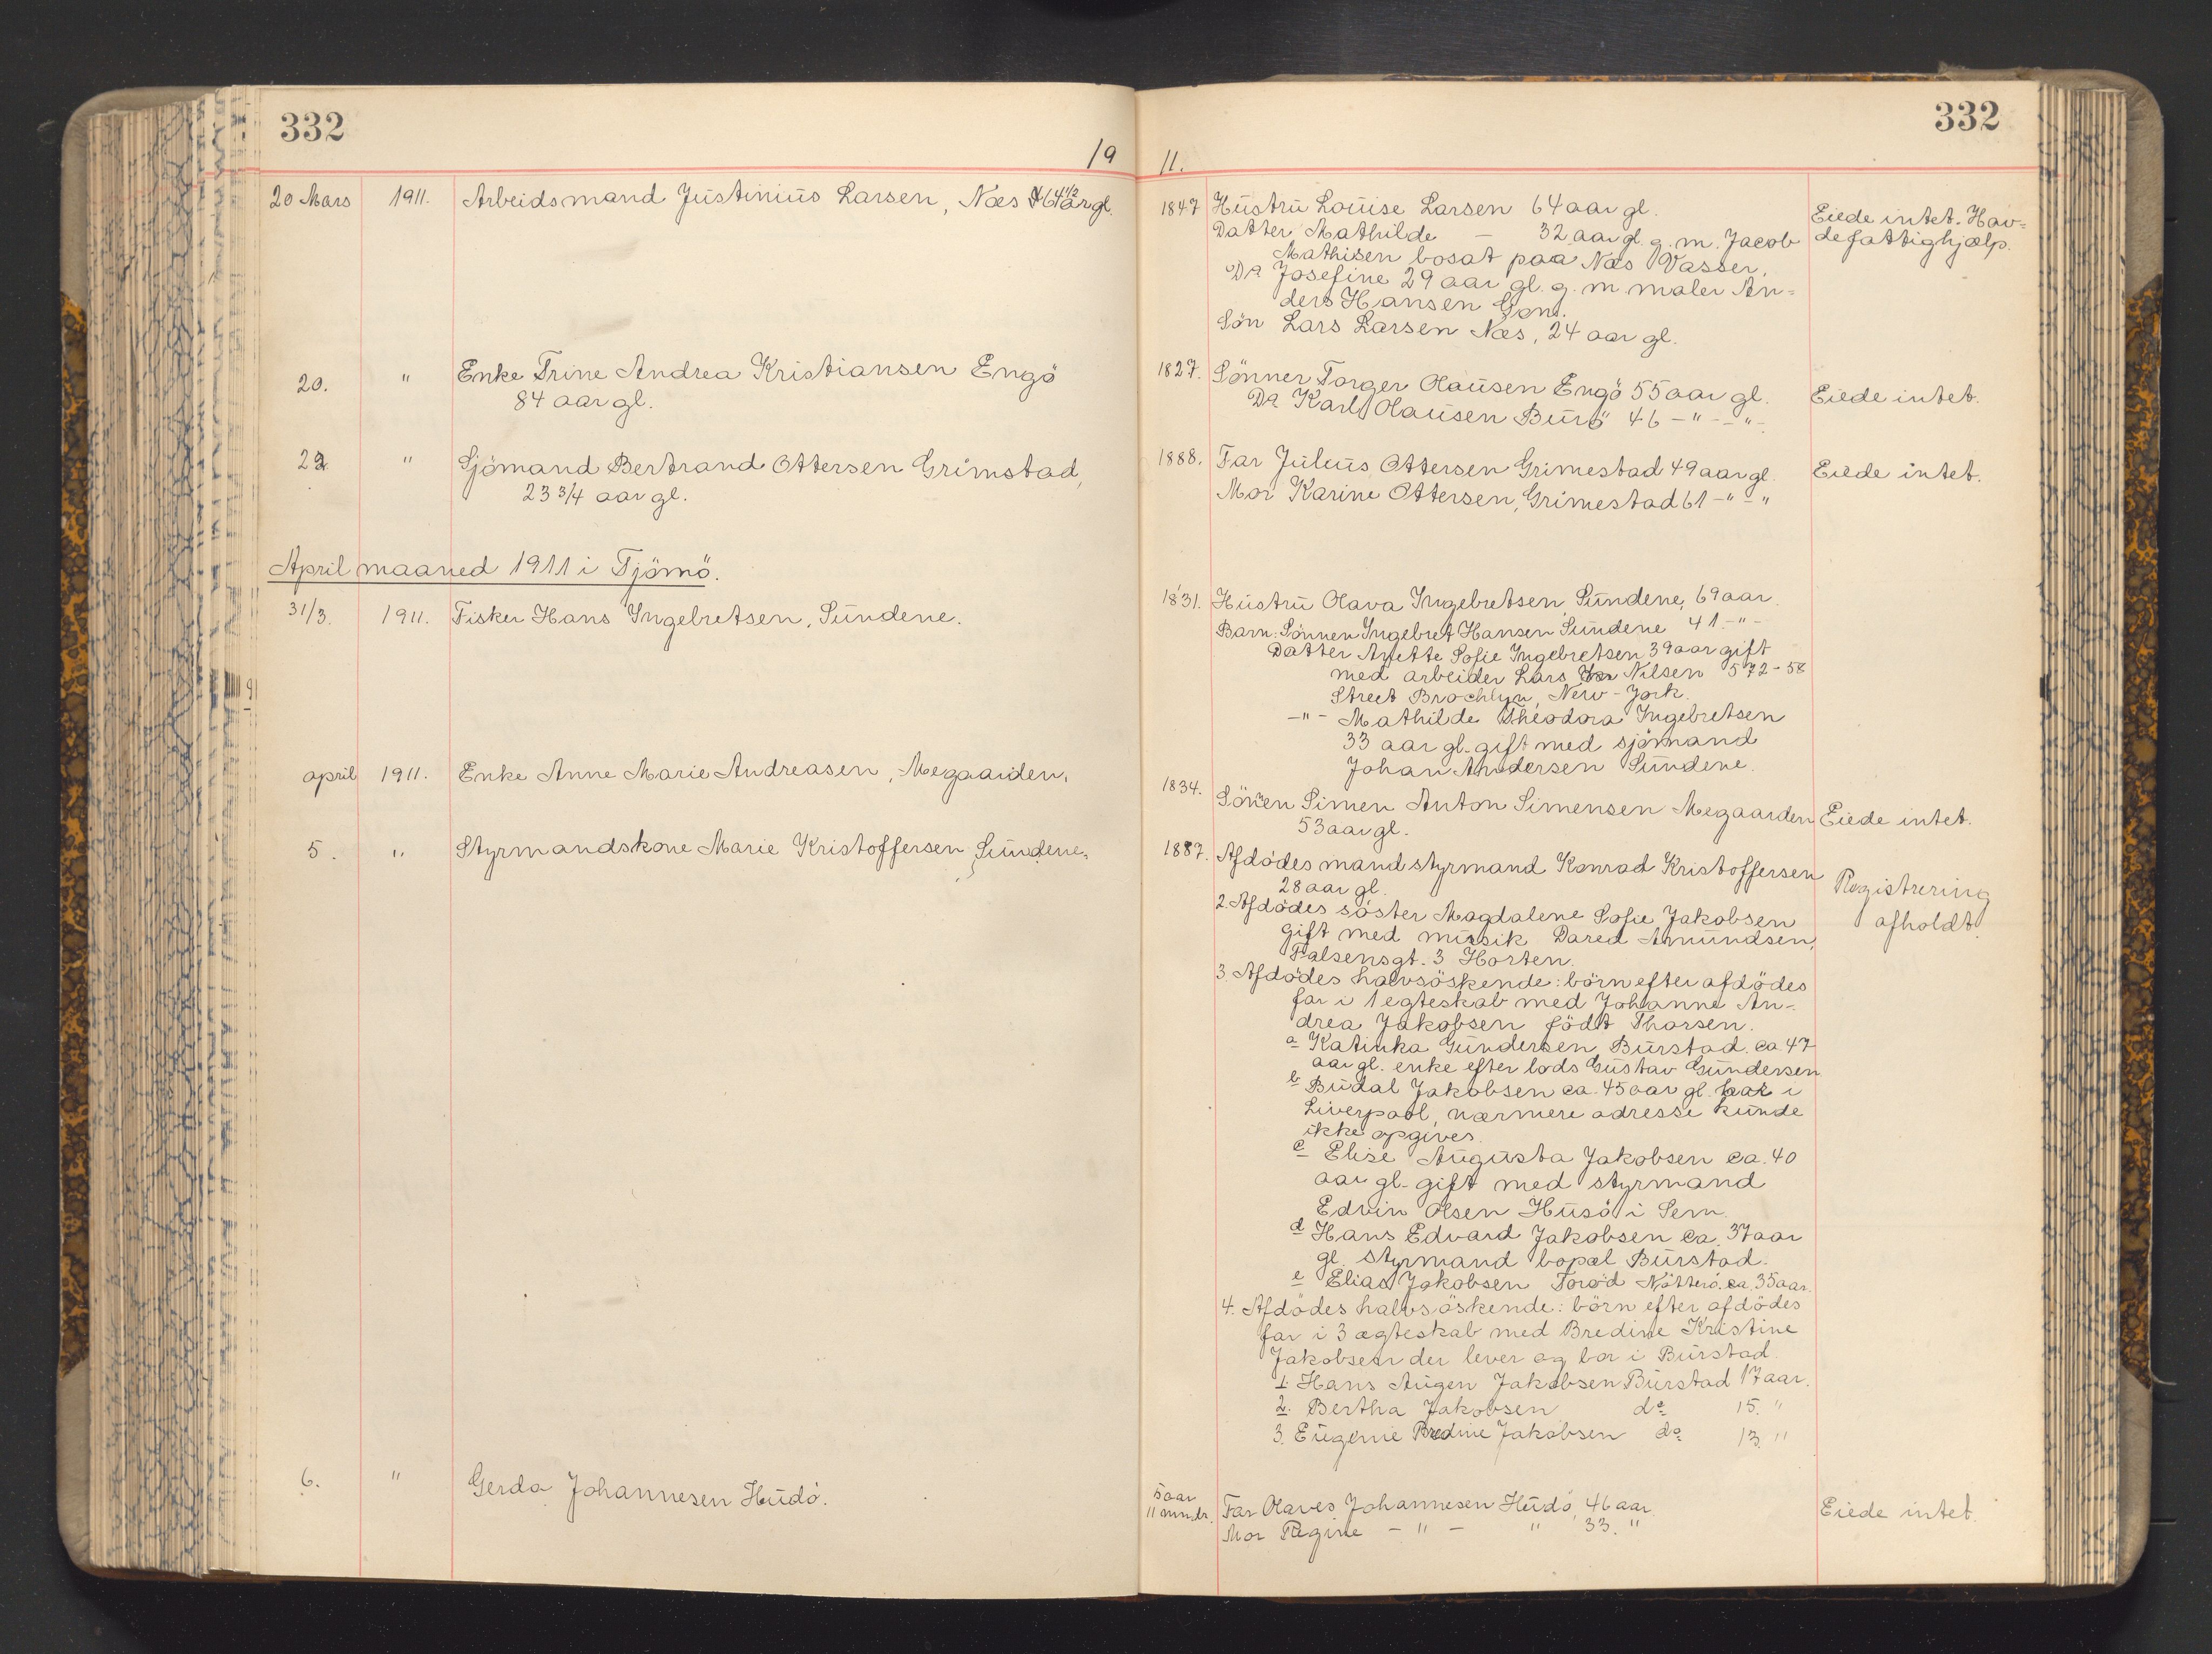 332
332
19 11.
20 Mars 1911. Arbeidsmand Justinius Larsen, Næs 64 1/2 aar gl.
1847 Hustru Louise Larsen 64 aar gl.
Datter Mathilde — 32 aar gl. g. m. Jacob
Mathisen bosat paa Næs Vasser.
Do Josefine 29 aar gl. g. m. maler An=
ders Hansen
Sön Lars Larsen Næs, 24 aar gl.
Eiede intet. Hav=
de fattighjælp.
20. " Enke Trine Andrea Kristiansen Engö
84 aar gl.
1827. Sönner Torger Olausen Engö 55 aar gl.
Do Karl Olausen Burö 46 —"— —"—
Eiede intet.
22 " Sjömand Bertrand Ottersen Grimstad,
23 3/4 aar gl.
1888. Far Julius Ottersen Grimestad 49 aar gl.
Mor Karine Ottersen, Grimestad 61 —"—"
Eiede intet.
April maaned 1911 i Tjömö.
31/3. 1911. Fisker Hans Ingebretsen, Sundene.
1831. Hustru Olava Ingebretsen, Sundene, 69 aar.
Barn: Sönnen Ingebret Hansen Sundene 41 —"—
Datter Anette Sofie Ingebretsen 39 aar gift
med arbeider Lars Nilsen 572-58
Street Brochlyn, New-York.
—"— Mathilde Theodora Ingebretsen
33 aar gl. gift med sjömand
Johan Andersen Sundene.
april 1911. Enke Anne Marie Andreasen, Megaarden.
1834. Sönnen Simen Anton Simensen Megaarden
53 aar gl.
Eiede intet.
5. " Styrmandskone Marie Kristoffersen Sundene.
1887. Afdödes mand styrmand Konrad Kristoffersen
28 aar gl.
2. Afdödes söster Magdalene Sofie Jakobsen
gift med musik Dared Amundsen,
Falsensgt. 3 Horten.
3. Afdödes halvsöskende: börn efter afdödes
far i 1 egteskab med Johanne An-
drea Jakobsen födt Thorsen.
a Katinka Gundersen Burstad. ca. 47
aar gl. enke efter lods Gustav Gundersen
b Budal Jakobsen ca. 45 aar gl. i
Liverpool, nærmere adresse kunde
ikke opgives.
c Elise Augusta Jakobsen ca. 40
aar gl. gift med styrmand
Edvin Olsen Husö i Sem.
d Hans Edvard Jakobsen ca. 37 aar
gl. styrmand bopæl Burstad.
e Elias Jakobsen Torød Nötterö. ca. 35 aar.
4. Afdödes halvsöskende: börn efter afdödes
far i 3 ægteskab med Bredine Kristine
Jakobsen der lever og bor i Burstad.
1. Hans Augen Jakobsen Burstad 17 aar.
2. Bertha Jakobsen do 15. "
3. Eugenie Bredine Jakobsen do 13. "
Registrering
afholdt.
6. " Gerda Johannesen Hudö.
5 aar
11 mndr.
Far Olaves Johannesen Hudö, 46 aar.
Mor Regine — " — " 33. "
Eiede intet.